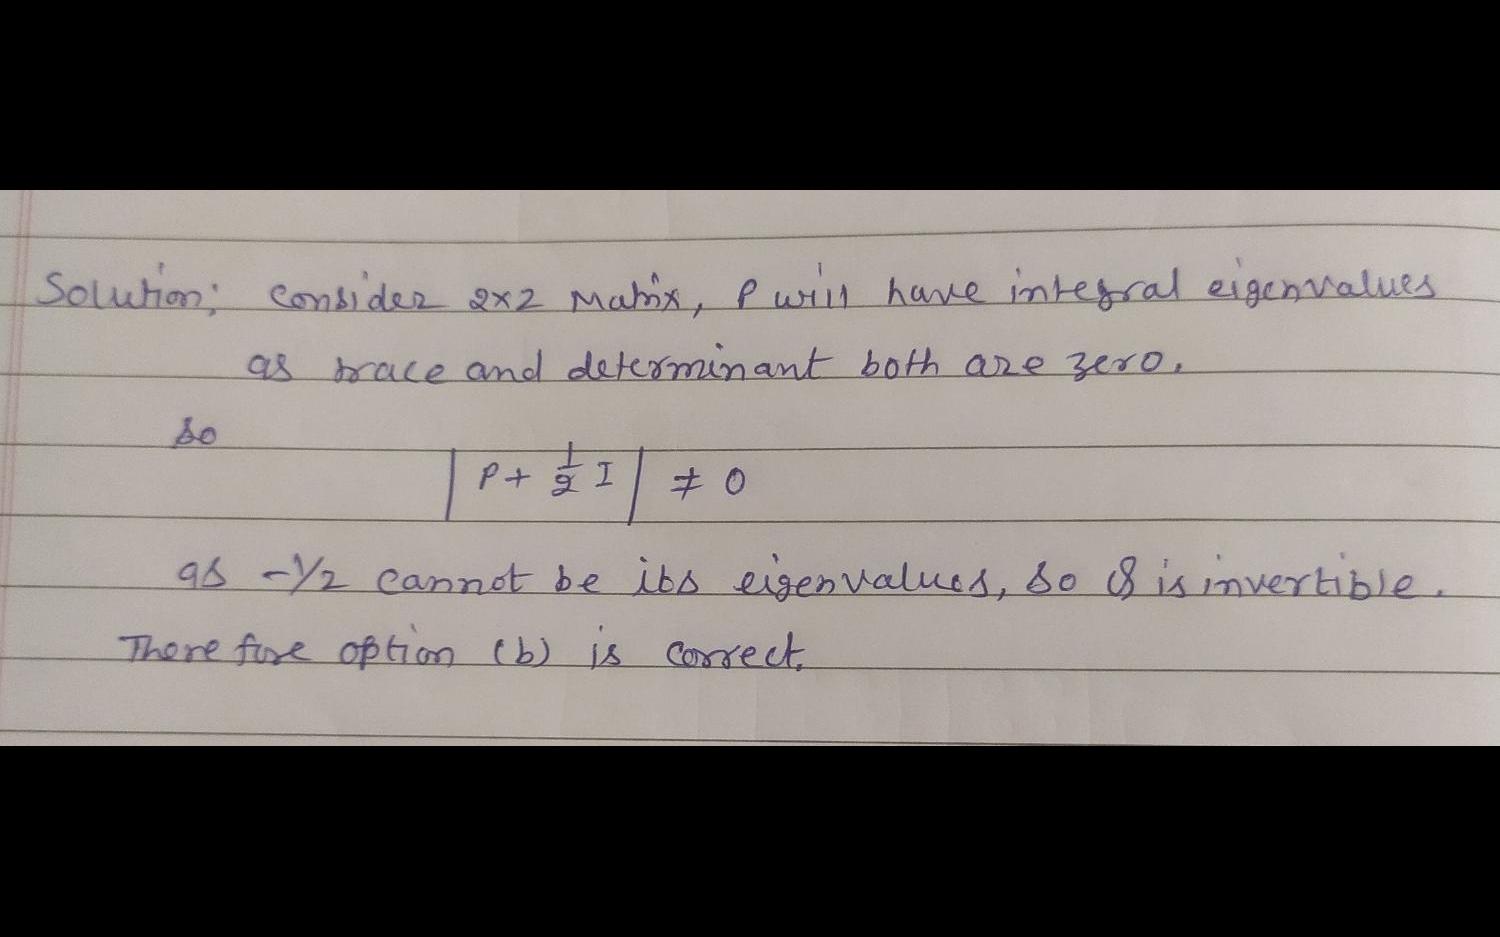 Solution; Consider 2x2 Matrix, P will have integral eigenvalues
as trace and determinant both are zero.
so
| P + 1/2 I | ≠ 0
as -1/2 cannot be its eigenvalues, so Q is invertible.
Therefore option (b) is correct.